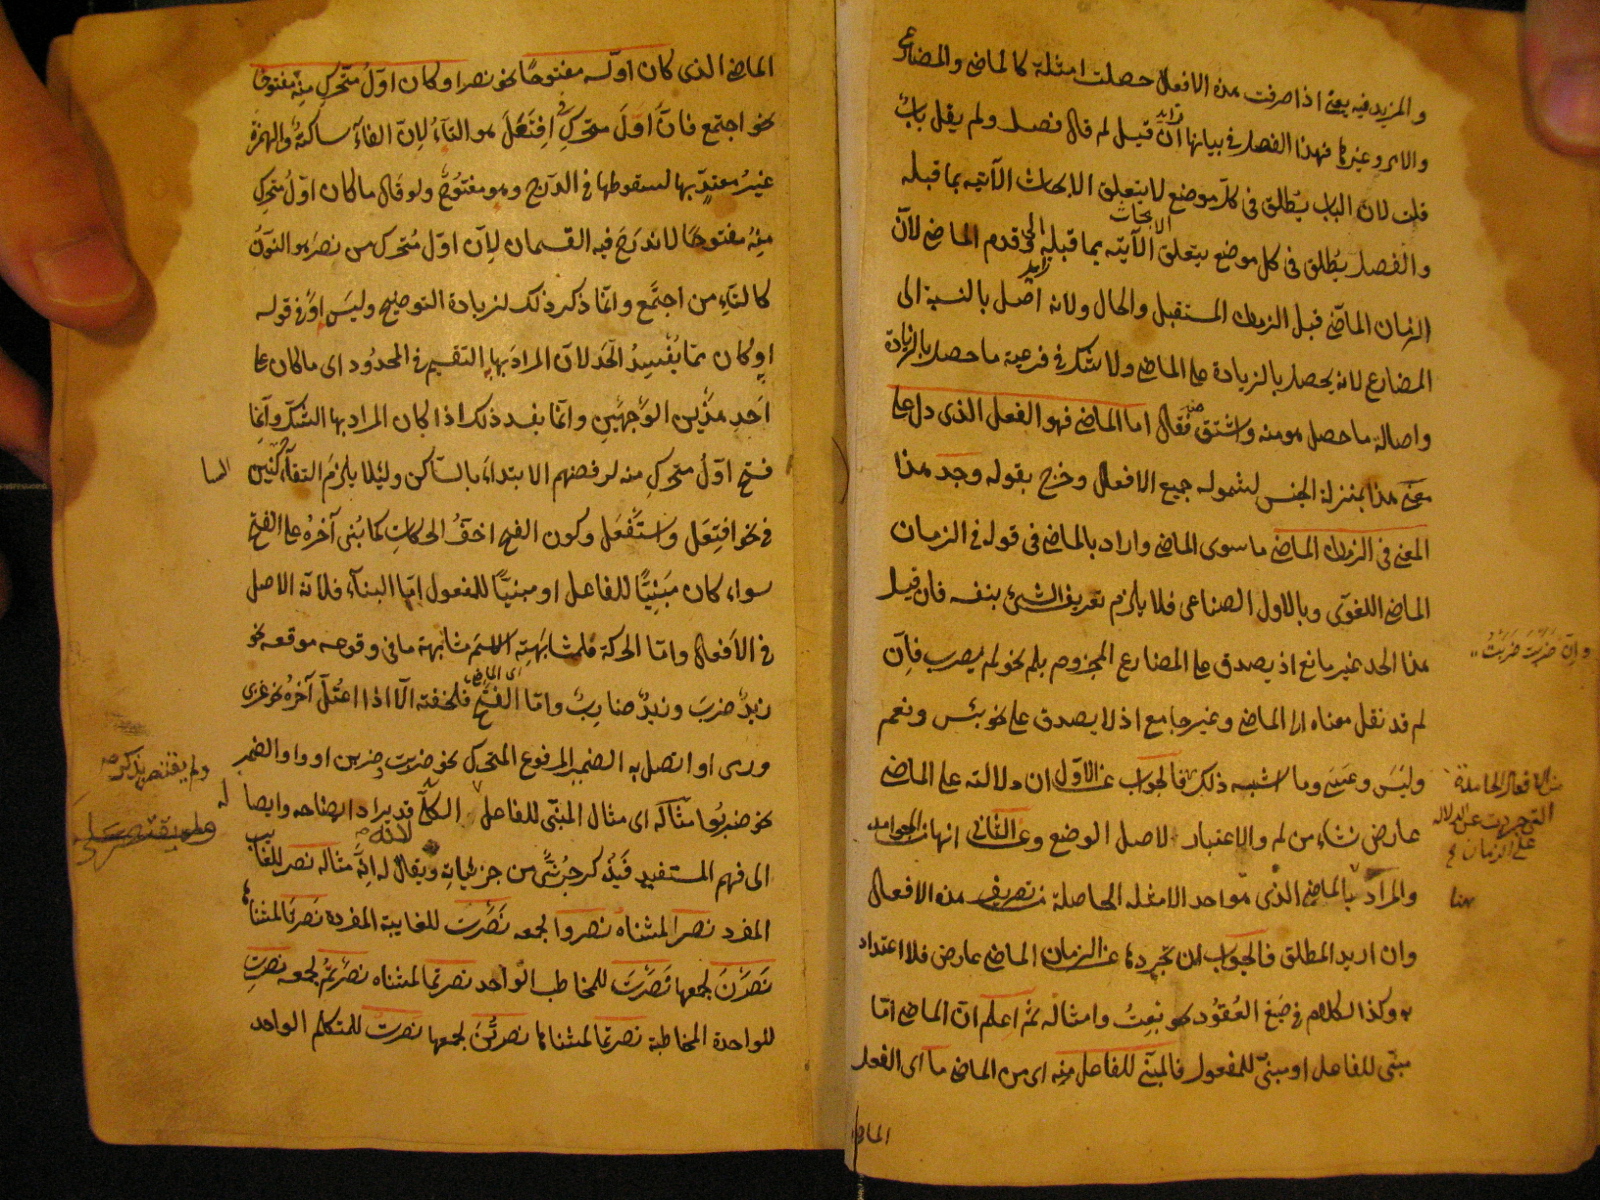 والمزيد فيه يعنى اذا صرفت هذه الافعال حصلت امثلة كالماضى والمضارع
والامر وغيرها فهذا الفصل فى بيانها فان قيل لم قال فصل ولم يقل باب
قلت لان الباب يُطلق فى كل موضع لا يتعلق الابحاث الآتيه بما قبله
والفصل يُطلق فى كل موضع يتعلق الابحاث الآتيه بما قبله قدم الماضى لانّ
الزمان الماضى قبل الزمان المستقبل والحال ولانه اصل بالنسبة الى
المضارع لانه يحصل بالزيادة على الماضى ولا شك فى فرعية ما حصل بالزيادة
واصالة ما حصل هو منه واشتق منه فقال اما الماضى فهو الفعل الذى دل على
معنى هذا بمنزلة الجنس لشموله جميع الافعال وخرج بقوله وجد هذا
المعنى فى الزمان الماضى ما سوى الماضى واراد بالماضى فى قوله فى الزمان
الماضى اللغوى وبالاول الصناعى فلا يلزم تعريف الشئ بنفسه فان قيل
هذا الحد غير مانع اذ يصدق على المضارع المجزوم بلم نحو لم يضرب فانّ
لم قد نقل معناه الى الماضى وغير جامع اذ لا يصدق على نحو بئس ونعم
وليَسَ وعَسَى وما اشبه ذلك فالجواب عن الاوّل ان دلالته على الماضى
عارض نشاء من لم والاعتبار لاصل الوضع وعن الثانى انها من الجوامد
والمراد بالماضى الذى هو احد الامثله الحاصلة من تصريف هذه الافعال
وان اريد المطلق فالجواب ان تجردها عن الزمان الماضى عارض فلا اعتداد
به وكذا الكلام فى صِيَغ العُقُود نحو بعِتُ وامثاله ثم اعلم ان الماضى امّا
مبنى للفاعل او مبنىّ للمفعول فالمبنى للفاعل منه اى من الماضى ما اى الفعل
الماضى
وانّ ضَرَبْتَ ضَرَبْتُ
من الافعال الجامدة
التى جردت عن الدلالة
على الزمان
هنا
الماضى الذى كان اوّله مفتوحًا نحو نصر او كان اوّلُ متحرّكٍ مِنهُ مفتوحًا
نحو اجتمع فانّ اوّلَ متحركٍ فى اِفتَعَلَ هو التاءُ لِانّ الفاءَ ساكنةٌ والهمزة
غيرُ معتدٍّ بها لسقوطها فى الدّرج وهو مفتوحٌ ولو قال ما كان اوّلُ متحركٍ
مِنهُ مفتوحًا لاندرَجَ فيه القسمان لِانّ اوّل متحركٍ من نصرَ هو النونُ
كالتاءِ من اجتمع وانما ذكر ذلك لزيادة التوضيح وليسَ اوْ فى قوله
اوكان مما يُفْسِدُ الحَدَ لان المرادَ بها التقسيم فى المحدُود اى ما كان على
اَحدِ هذَينِ الوَجهَينِ وانما يفسد ذلك اذا كان المراد بها الشكّ وانما
فتح اوّلُ متحركٍ منه لرفضهم الابتداءَ بالساكن ولِئلا يلزمَ التقاءُ ساكنين
فى نحو افتعَل واستَفعَل وكون الفتح اخفَّ الحركاتِ كما بُنى آخرُهُ على الفتحِ
سواء كان مَبنِيًّا للفاعل او مبنِيًّا للمفعول امّا البناء فلانّه الاصل
فى الاَفعال وامّا الحركة فلمشابَهَتِهِ الاسمَ مشابهة ما فى وقوعه موقعه نحو
زيدٌ ضربَ وزيدٌ ضاربٌ وامّا الفتح فلخفته الّا اذا اعتُلّ آخرُهُ نحو غزى
اى الماضى
ورمى او اتصل به الضمير المرفوع المتحرك نحو ضربت وضربن او واو الضمير
نحو ضربُوا مثاله اى مثال المبنى للفاعل الكلّ قد يراد ايضاحه وايصاله
الى فهم المستفيد فيُذكر جُزئىٌّ من جزئياتِهِ ويقال له اِنّه مثاله نصر للغايب
لانه
المفرد نصرا لمثناه نصروا لجمعه نَصَرَت للغايبة المفردة نَصَرَتا لمثناها
نَصَرْنَ لجمعها نَصَرْتَ للمخاطب الواحد نصرتما لمثناه نصرْتُمْ لجمعه نصرتِ
للواحدة المخاطبة نصرتما لمثناها نصرتُنّ لجمعها نصرتُ للمتكلم الواحد
ولم يقتصر بذكر